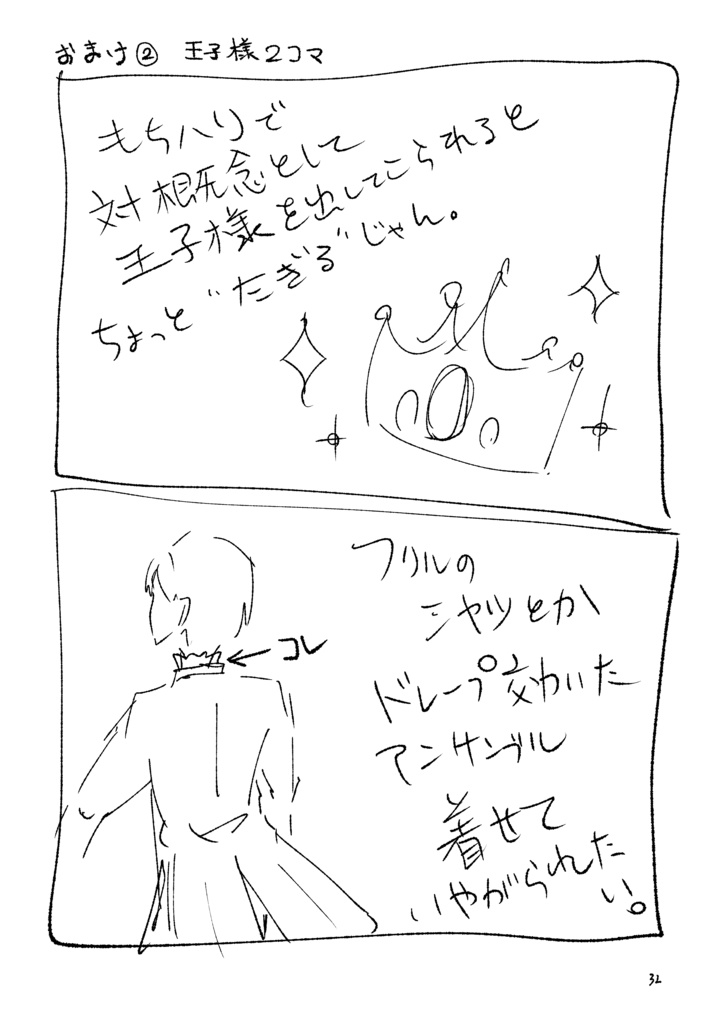 おまけ② 王子様2コマ
もちハリで
対概念として
王子様を出してこられると
ちょっと"たぎる"じゃん。
コレ
フリルの
シャツとか
ドレープ効いた
アンサンブル
着せて
いやがられたい。
32